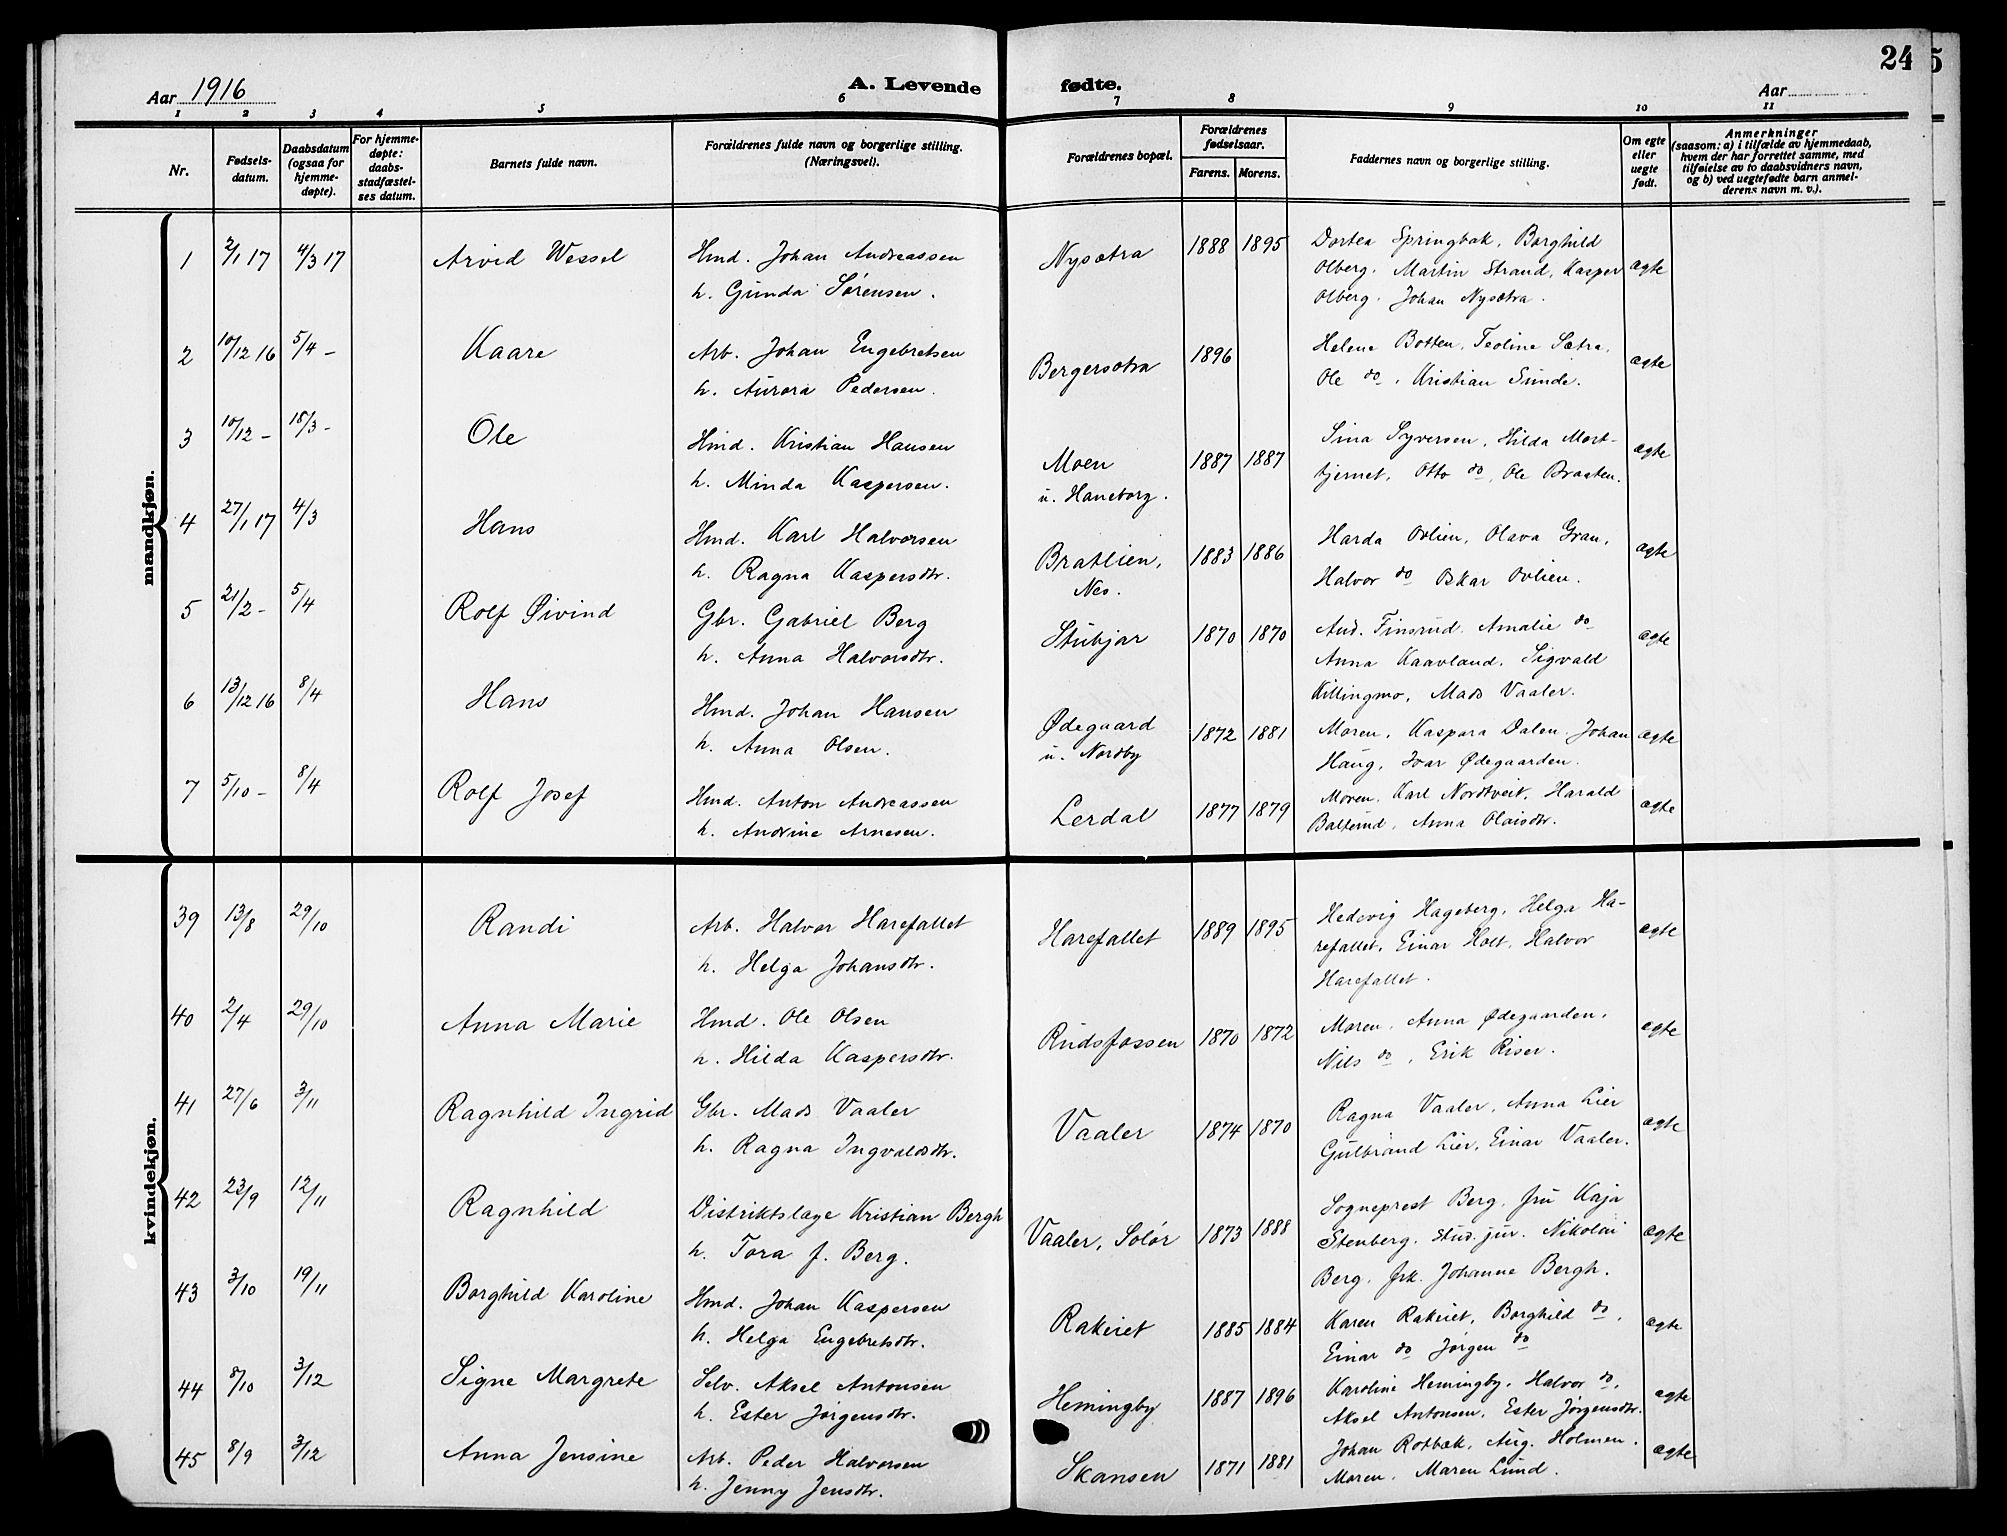 24
Aar 1916
A. Levende fødte.
Aar
1 2 3 4 5 6 7 8 9 10 11
Nr.
Fødsels-
datum.
Daabsdatum
(ogsaa for
hjemme-
døpte).
For hjemme-
døpte:
daabs-
stadfæstel-
ses datum.
Barnets fulde navn.
Forældrenes fulde navn og borgerlige stilling.
(Næringsvei).
Forældrenes bopæl.
Forældrenes
fødselsaar.
Farens. Morens.
Faddernes navn og borgerlige stilling.
Om egte
eller
uegte
født.
Anmerkninger
(saasom: a) i tilfælde av hjemmedaab,
hvem der har forrettet samme, med
tilføielse av to daabsvidners navn,
og b) ved uegtefødte barn anmel-
derens navn m. v.).
mandkjøn.
1 2/1 17 4/3 17 Arvid Wessel Hmd. Johan Andreassen Nysætra 1888 1895 Dortea Springbak, Borghild
h. Gunda Sørensen. Olberg. Martin Strand, Kasper ægte
Olberg. Johan Nysætra.
2 10/12 16 5/4 - Kaare Arb. Johan Engebretsen Bergersætra 1896 Helene Botten, Teoline Sætra, ægte
h. Aurora Pedersen. Ole do, Kristian Sunde.
3 10/12 - 18/3 - Ole Hmd. Kristian Hansen Moen 1887 1887 Sina Syversen, Hilda Mort- ægte
h. Minda Kaspersen. u. Haneborg. tjernet, Otto do, Ole Braaten.
4 27/1 17 4/3 Hans Hmd. Karl Halvorsen Bratlien, 1883 1886 Harda Ovlien, Olava Gran, ægte
h. Ragna Kaspersdtr. Nes. Halvor do Oskar Ovlien.
5 21/2 - 5/4 Rolf Øivind Gbr. Gabriel Berg Stubjar 1870 1870 And. Tinsrud. Amalie do ægte
h. Anna Halvorsdtr. Anna Kaavland. Sigvald
Killingmo, Mads Vaaler.
6 13/12 16 8/4 Hans Hmd. Johan Hansen Ødegaard 1872 1881 Moren, Kaspara Dalen. Johan ægte
h. Anna Olsen. u. Nordby Haug, Ivar Ødegaarden.
7 5/10 - 8/4 Rolf Josef Hmd. Anton Andreassen Lerdal 1877 1879 Moren. Karl Nordtveit, Harald ægte
h. Andrine Arnesen. Balterud, Anna Olaisdtr.
kvindekjøn.
39 13/8 29/10 Randi Arb. Halvor Harefallet Harefallet 1889 1895 Hedevig Hageberg, Helga Ha- ægte
h. Helga Johansdtr. refallet, Einar Holt, Halvor
Harefallet.
40 2/4 29/10 Anna Marie Hmd. Ole Olsen Rudsfossen 1870 1872 Moren, Anna Ødegaarden, ægte
h. Hilda Kaspersdtr. Nils do, Erik Riser.
41 27/6 3/11 Ragnhild Ingrid Gbr. Mads Vaaler Vaaler 1874 1870 Ragna Vaaler, Anna Lier ægte
h. Ragna Ingvaldsdtr. Gulbrand Lier, Einar Vaaler.
42 23/9 12/11 Ragnhild Distriktslæge Kristian Bergh Vaaler, Solør 1873 1888 Sogneprest Berg, fru Kaja
h. Tora f. Berg. Stenberg. stud. jur. Nikolai ægte
Berg, frk. Johanne Bergh.
43 3/10 19/11 Borghild Karoline Hmd. Johan Kaspersen Rakeiet 1885 1884 Karen Rakeiet, Borghild do, ægte
h. Helga Engebretsdtr. Einar do Jørgen do
44 8/10 3/12 Signe Margrete Selv. Aksel Antonsen Hemingby 1887 1896 Karoline Hemingby, Halvor do, ægte
h. Ester Jørgensdtr. Aksel Antonsen, Ester Jørgensdtr.
45 8/9 3/12 Anna Jensine Arb. Peder Halvorsen Skansen 1871 1881 Johan Rotbæk, Aug. Holmen. ægte
h. Jenny Jensdtr. Moren, Maren Lund.